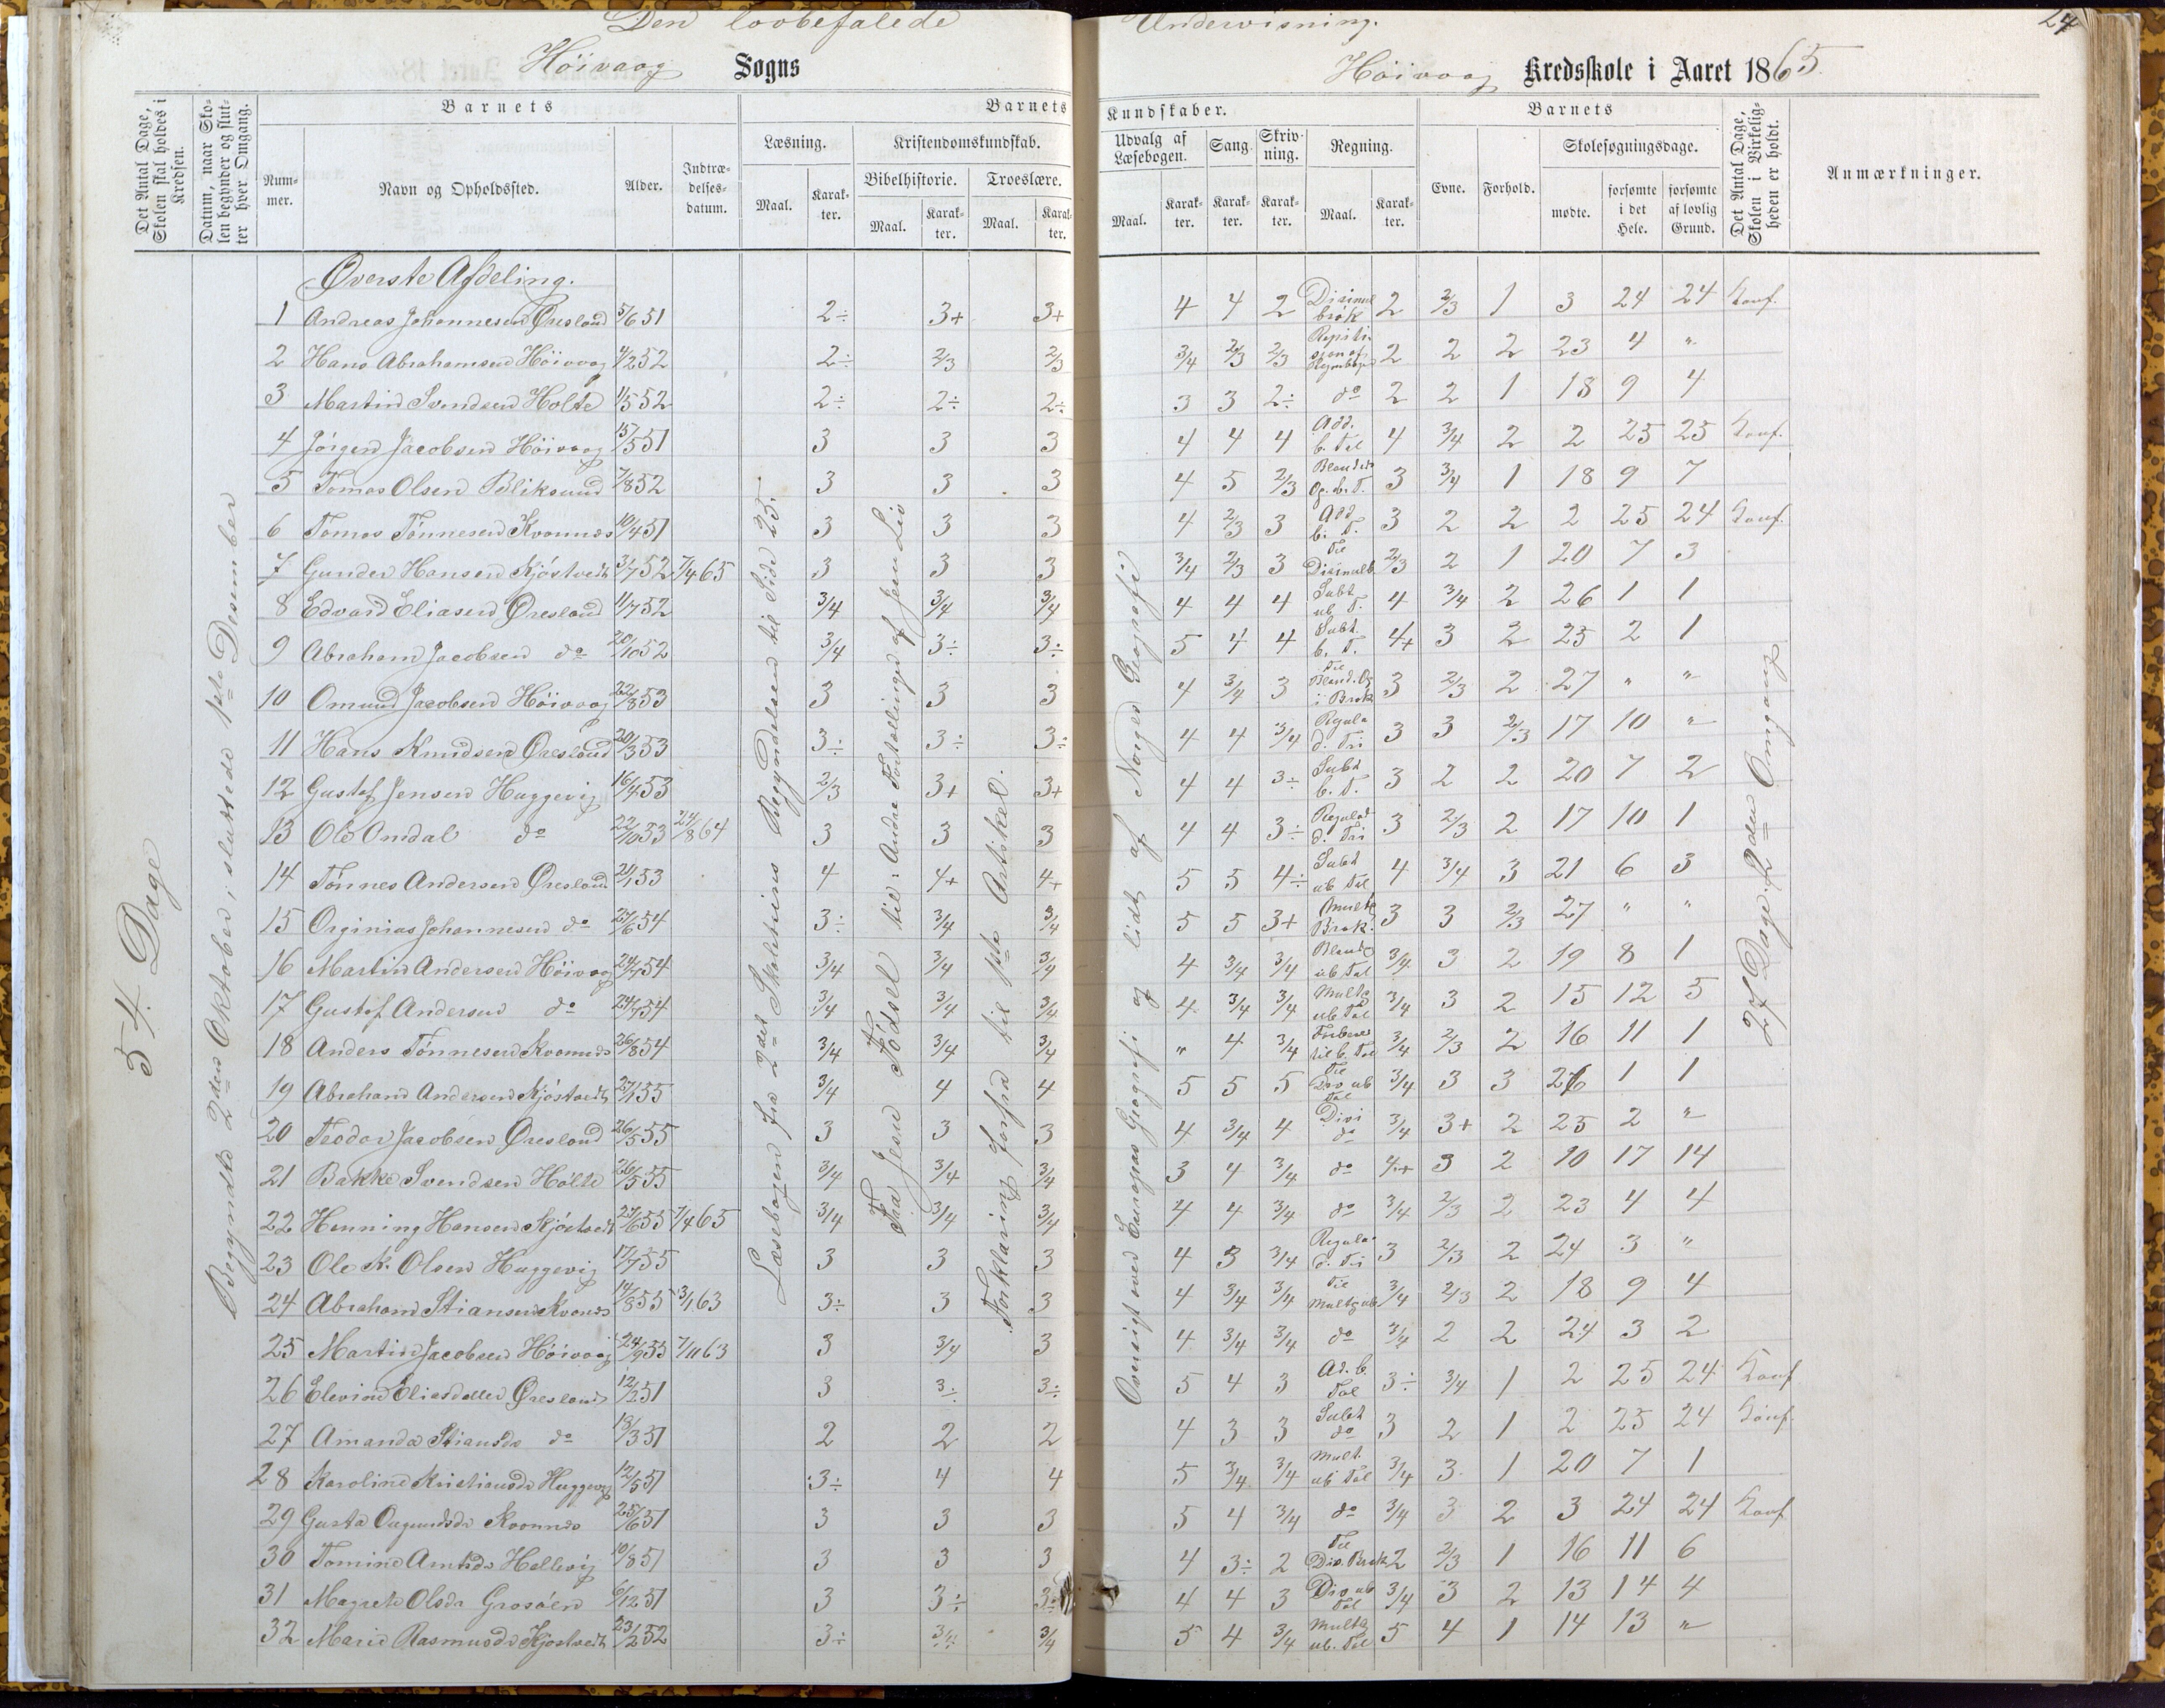 Den lovbefalede Undervisning.
24
Höivaag Sogns Höivaag Kredsskole i Aaret 1865.
Det Antal Dage, Skolen skal holdes i Kredsen.
Datum, naar Skolen begynder og slutter hver Omgang.
Barnets
Nummer.
Navn og Opholdssted.
Alder.
Indtrædelsesdatum.
Barnets Kundskaber.
Læsning.
Maal.
Karakter.
Kristendomskundskab.
Bibelhistorie.
Maal.
Karakter.
Troeslære.
Maal.
Karakter.
Udvalg af Læsebogen.
Maal.
Karakter.
Sang.
Karakter.
Skrivning.
Karakter.
Regning.
Maal.
Karakter.
Barnets
Evne.
Forhold.
Skolesøgningsdage.
mødte.
forsømte i det Hele.
forsømte af lovlig Grund.
Det Antal Dage, Skolen i Virkeligheden er holdt.
Anmærkninger.
54 Dage
Begyndte 2den Oktober, sluttede 1ste Desember
Læsebogen fra 2det Skoletrins Begyndelsen til Side 25.
Fra Jesu Födsel til: Andre Fortællinger af Jesu Liv
Forklaring forfra til 1ste Artikel.
Oversigt over Europas Geografi og lidt af Norges Geografi
27 Dage for den Omgang
Øverste Afdeling.
1 Andreas Johannesen Øresland 5/6 51 2÷ 3+ 3+ 4 4 2 Disimal brök 2 2/3 1 3 24 24 Konf.
2 Hans Abrahamsen Höivaag 4/2 52 2÷ 2/3 2/3 3/4 2/3 2/3 2 2 2 23 4 "
3 Martin Svendsen Holte 1/5 52 2÷ 2÷ 2÷ 3 3 2÷ do 2 2 1 18 9 4
4 Jörgen Jacobsen Höivaag 15/5 51 3 3 3 4 4 4 Add. b. Tal 4 3/4 2 2 25 25 Konf.
5 Tomas Olsen Bliksund 7/8 52 3 3 3 4 5 2/3 3 3/4 1 18 9 7
6 Tomas Tönnesen Kvannes 10/4 51 3 3 3 4 2/3 3 Add b. T. 3 2 2 2 25 24 Konf.
7 Gunder Hansen Kjöstvedt 31/7 52 7/4 65 3 3 3 3/4 2/3 3 Til Disimalb. 2/3 2 1 20 7 3
8 Edvard Eliasen Øresland 1/7 52 3/4 3/4 3/4 4 4 4 Subt ub T. 4 3/4 2 26 1 1
9 Abraham Jacobsen do 20/10 52 3/4 3÷ 3÷ 5 4 4 Subt. b. T. 4+ 3 2 25 2 1
10 Omund Jacobsen Höivaag 22/8 53 3 3 3 4 3/4 3 Til Bland. Og i Brøk 3 2/3 2 27 " "
11 Hans Knudsen Øresland 20/3 53 3÷ 3÷ 3÷ 4 4 3/4 Regula d. Tri 3 3 2/3 17 10 "
12 Gustaf Jensen Haggevig 16/4 53 2/3 3+ 3+ 4 4 3÷ Subt b. T. 3 2 2 20 7 2
13 Ole Omdal do 22/10 53 24/8 64 3 3 3 4 4 3÷ Regula d. Tri 3 2/3 2 17 10 1
14 Tönnes Andersen Øresland 21/1 53 4 4+ 4+ 5 5 4÷ Subt ub Tal 4 3/4 3 21 6 3
15 Orginias Johannesen do 27/6 54 3÷ 3/4 3/4 5 5 3+ Multg Brøk. 3 3 2/3 27 " "
16 Martin Andersen Höivaag 24/7 54 3/4 3/4 3/4 4 3/4 3/4 ub Tal 3/4 3 2 19 8 1
17 Gustaf Andersen do 24/7 54 3/4 3/4 3/4 4 3/4 3/4 Multg ub Tal 3/4 3 2 15 12 5
18 Anders Tönnesen Kvannes 26/8 54 3/4 3/4 3/4 " 4 3/4 til b. Tal 3/4 2/3 2 16 11 1
19 Abraham Andersen Kjöstvedt 27/1 55 3/4 4 4 5 5 5 Til Div ub Tal 3/4 3 3 26 1 1
20 Teodor Jacobsen Øresland 26/5 55 3 3 3 4 3/4 4 Divi do 3/4 3+ 2 25 2 "
21 Bakke Svendsen Holte 26/5 55 3/4 3/4 3/4 3 4 3/4 do 4+ 3 2 10 17 14
22 Henning Hansen Kjöstvedt 27/6 55 7/4 65 3/4 3/4 3/4 4 4 3/4 do 3/4 2/3 2 23 4 4
23 Ole K. Olsen Haggevig 17/7 55 3 3 3 4 3 3/4 Regula d. Tri 3 2/3 2 24 3 "
24 Abraham Stiansen Kvannes 14/8 55 3/1 63 3÷ 3 3 4 3/4 3/4 Til Multg ub 3/4 2/3 2 18 9 4
25 Martin Jacobsen Höivaag 24/9 55 7/11 63 3 3/4 3 4 3/4 3/4 do 3/4 2 2 24 3 2
26 Elevine Eliasdatter Øresland 12/2 51 3 3÷ 3÷ 5 4 3 Ad. b. Tal 3÷ 3/4 1 2 25 24 Konf
27 Amanda Stiansdr do 13/3 51 2 2 2 4 3 3 Subt do 3 2 1 2 25 24 Konf.
28 Karoline Kristiansdr Haggevig 12/5 51 3÷ 4 4 5 3/4 3/4 Mult. ub Tal 3/4 3 1 20 7 1
29 Gusta Aagundsdr Kvannes 25/6 51 3 3 3 5 4 3/4 do 3/4 3 2 3 24 24 Konf
30 Tomine Amtsdr Hellevig 10/8 51 3 3 3 4 3÷ 2 Til Div. Brøk 2 2/3 1 16 11 6
31 Magrete Olsdr Grosöen 6/12 51 3 3÷ 3÷ 4 4 3 Div ub Tal 3/4 3 2 13 14 4
32 Marie Rasmusdr Kjöstvedt 23/2 52 3÷ 3/4 3/4 5 4 3/4 Multg ub. Tal 5 4 1 14 13 "